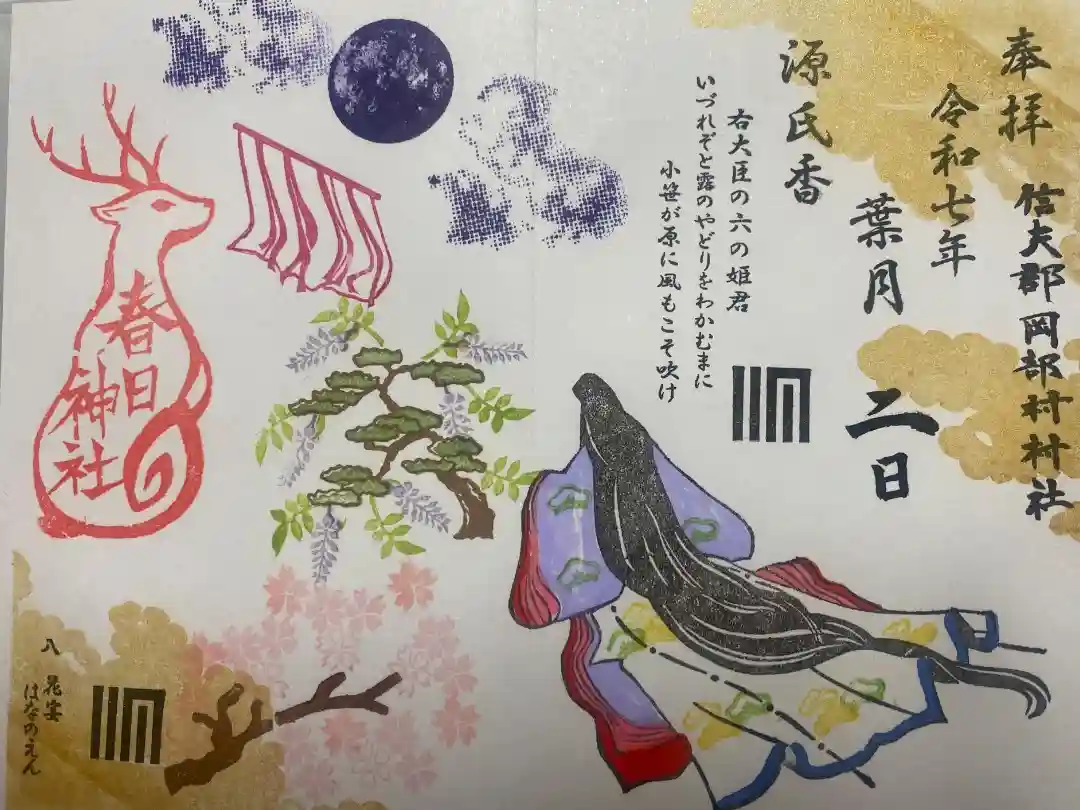 奉拝
信夫郡岡部村村社
令和七年
葉月二日
源氏香
右大臣の六の姫君
いづれぞと露のやどりをわかむまに
小笹が原に風もこそ吹け
春日
神社
八 花宴
はなのえん